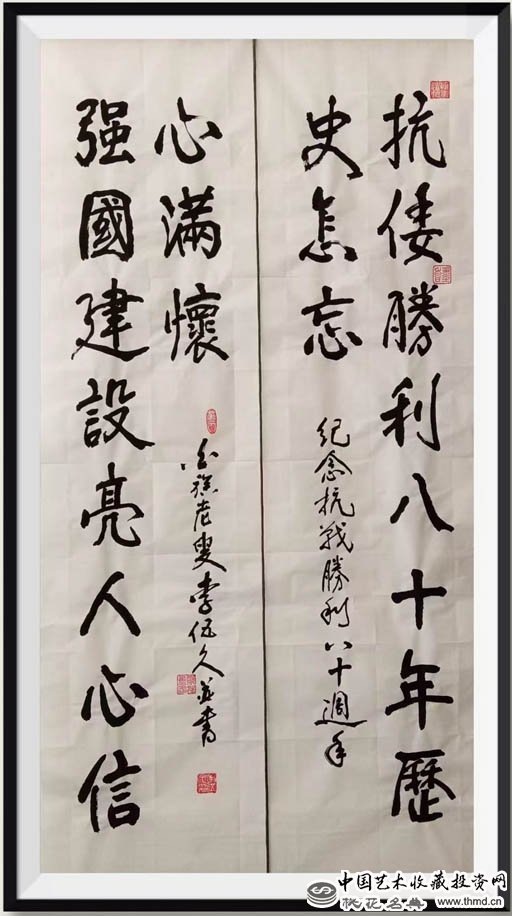 抗倭勝利八十年歷
史怎忘
紀念抗戰勝利八十週年
强國建設亮人心信
心滿懷
老叟李伍久并書
中国艺术收藏投资网
www.thmd.cn
桃花名典